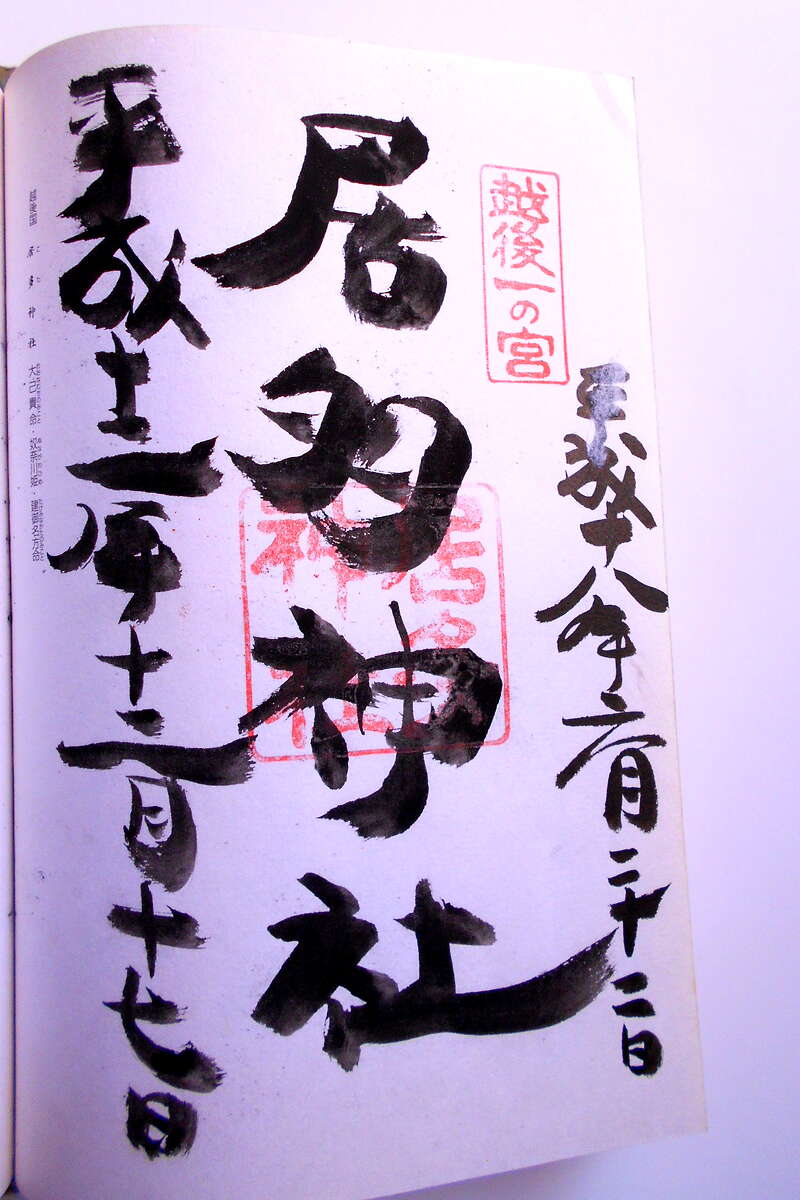 越後一の宮
平成十八年六月二十二日
居多神社
居多
神社
平成十二年十二月十七日
居多神社 大己貴命・奴奈川姫・建御名方命